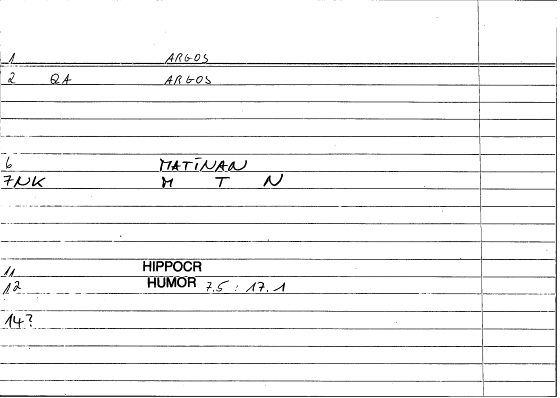 1 ARGOS
2 QA ARGOS
6 MATINAN
7NK M T N
11 HIPPOCR
12 HUMOR 7.5 : 17.1
14?